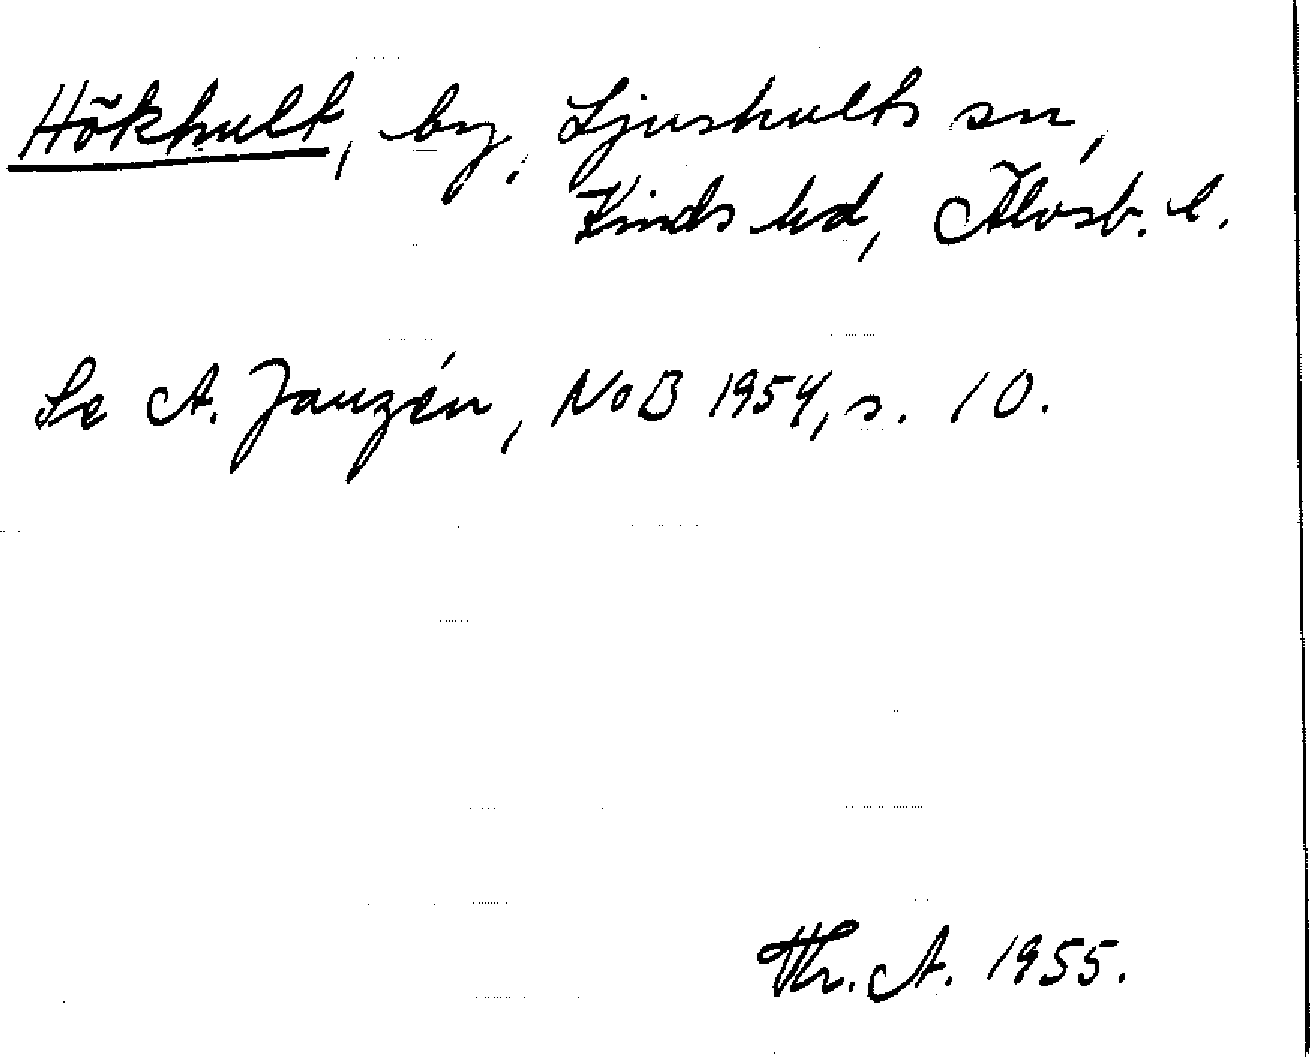 Hökhult, by, Ljushults sn,
Kinds hd, Älvsb. l.
Se A. Janzén, NoB 1954, s. 10.
Th. A. 1955.